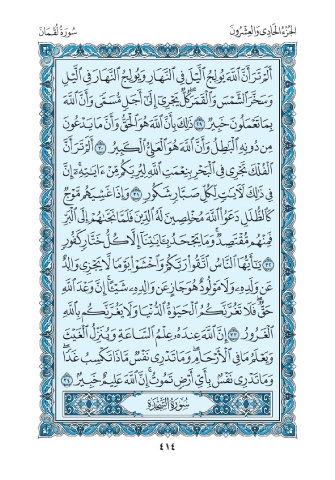 الجزء الحادي والعشرون
سورة لقمان
أَلَمۡ تَرَ أَنَّ ٱللَّهَ يُولِجُ ٱلَّيۡلَ فِي ٱلنَّهَارِ وَيُولِجُ ٱلنَّهَارَ فِي ٱلَّيۡلِ
وَسَخَّرَ ٱلشَّمۡسَ وَٱلۡقَمَرَۖ كُلّٞ يَجۡرِيٓ إِلَىٰٓ أَجَلٖ مُّسَمّٗى وَأَنَّ ٱللَّهَ
بِمَا تَعۡمَلُونَ خَبِيرٞ ٢٩ ذَٰلِكَ بِأَنَّ ٱللَّهَ هُوَ ٱلۡحَقُّ وَأَنَّ مَا يَدۡعُونَ
مِن دُونِهِ ٱلۡبَٰطِلُ وَأَنَّ ٱللَّهَ هُوَ ٱلۡعَلِيُّ ٱلۡكَبِيرُ ٣٠ أَلَمۡ تَرَ أَنَّ
ٱلۡفُلۡكَ تَجۡرِي فِي ٱلۡبَحۡرِ بِنِعۡمَتِ ٱللَّهِ لِيُرِيَكُم مِّنۡ ءَايَٰتِهِۦٓۚ إِنَّ
فِي ذَٰلِكَ لَأٓيَٰتٖ لِّكُلِّ صَبَّارٖ شَكُورٖ ٣١ وَإِذَا غَشِيَهُم مَّوۡجٞ
كَٱلظُّلَلِ دَعَوُاْ ٱللَّهَ مُخۡلِصِينَ لَهُ ٱلدِّينَ فَلَمَّا نَجَّىٰهُمۡ إِلَى ٱلۡبَرِّ
فَمِنۡهُم مُّقۡتَصِدٞۚ وَمَا يَجۡحَدُ بِـَٔايَٰتِنَآ إِلَّا كُلُّ خَتَّارٖ كَفُورٖ
٣٢ يَٰٓأَيُّهَا ٱلنَّاسُ ٱتَّقُواْ رَبَّكُمۡ وَٱخۡشَوۡاْ يَوۡمٗا لَّا يَجۡزِي وَالِدٌ
عَن وَلَدِهِۦ وَلَا مَوۡلُودٌ هُوَ جَازٍ عَن وَالِدِهِۦ شَيۡـًٔاۚ إِنَّ وَعۡدَ ٱللَّهِ
حَقّٞۖ فَلَا تَغُرَّنَّكُمُ ٱلۡحَيَوٰةُ ٱلدُّنۡيَا وَلَا يَغُرَّنَّكُم بِٱللَّهِ
ٱلۡغَرُورُ ٣٣ إِنَّ ٱللَّهَ عِندَهُۥ عِلۡمُ ٱلسَّاعَةِ وَيُنَزِّلُ ٱلۡغَيۡثَ
وَيَعۡلَمُ مَا فِي ٱلۡأَرۡحَامِۖ وَمَا تَدۡرِي نَفۡسٞ مَّاذَا تَكۡسِبُ غَدٗاۖ
وَمَا تَدۡرِي نَفۡسُۢ بِأَيِّ أَرۡضٖ تَمُوتُۚ إِنَّ ٱللَّهَ عَلِيمٌ خَبِيرُۢ ٣٤
سورة السجدة
٤١٤